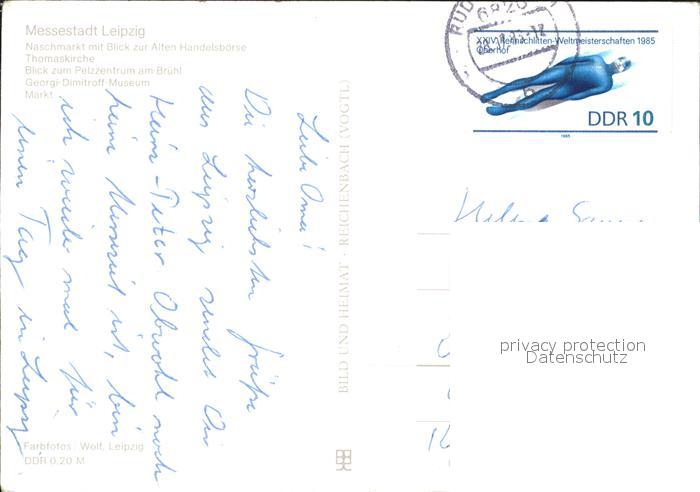 Messestadt Leipzig
Naschmarkt mit Blick zur Alten Handelsbörse
Thomaskirche
Blick zum Pelzzentrum am Brühl
Georgi-Dimitroff-Museum
Markt
Liebe Oma!
Die herzlichsten Grüße
aus Leipzig sendet Dir
Heinz-Peter Obwohl noch
keine Messezeit ist, bin
ich wieder mal für
einen Tag in Leipzig
Farbfotos: Wolf, Leipzig
DDR 0,20 M
BILD UND HEIMAT · REICHENBACH (VOGTL)
XXIV. Rennschlitten-Weltmeisterschaften 1985
Oberhof
DDR 10
1985
RUD
6820
privacy protection
Datenschutz